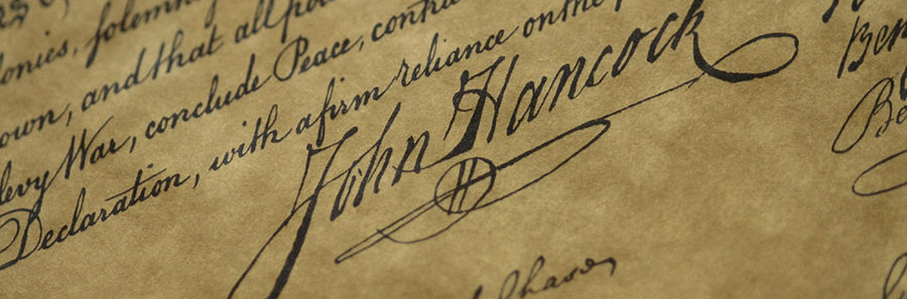 onies, solemnly
own, and that all po
levy War, conclude Peace, contra
Declaration, with a firm reliance on the
John Hancock
Ben
Be
Chase